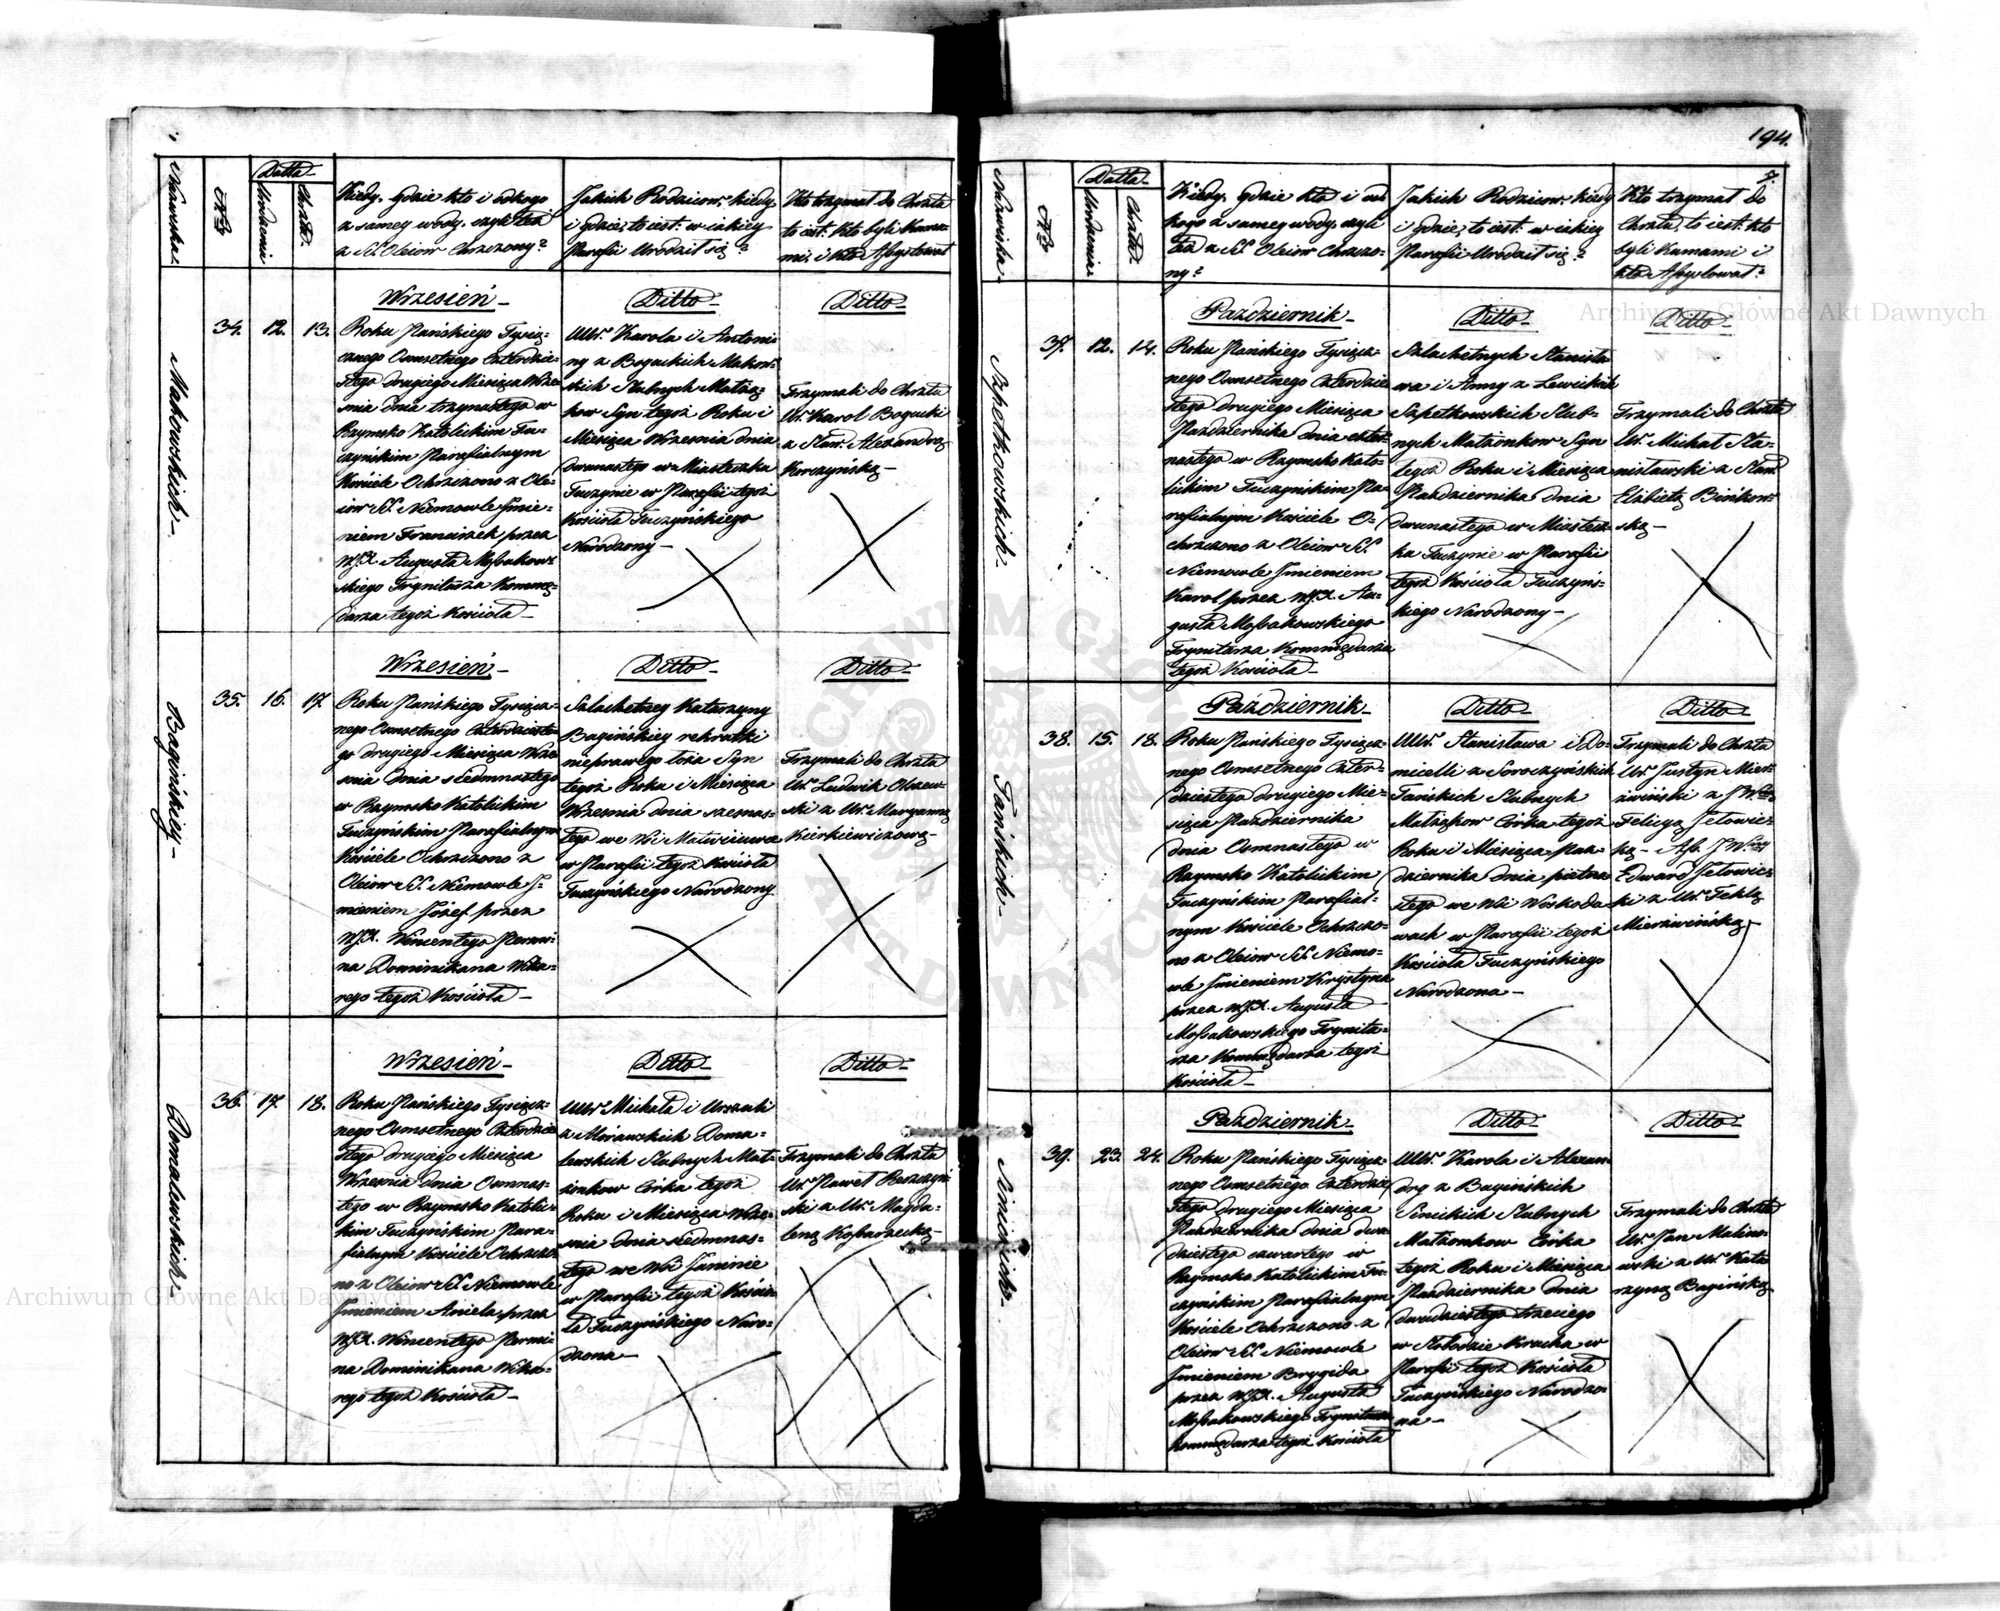 Nazwiska.
Nr
Datta
Urodzenia
Chrztu.
Kiedy, gdzie kto i od kogo
z samey wody, czyli też
z S.S. Oleiow Chrzczony?
Jakich Rodzicow, kiedy
i gdzie, to iest: w iakiey
Parafii Urodził się?
Kto trzymał do Chrztu
to iest: Kto byli Kuma-
mi: i kto Assystował
Makowskich.
34. 12. 13.
Wrzesień
Roku Pańskiego Tysiąc-
znego Osmsetnego Czterdzie-
stego drugiego Miesiąca Wrze-
snia dnia trzynastego w
Rzymsko Katolickim Tu-
czyńskim Parafialnym
Kościele Ochrzczono z Ole-
iow S.S. Niemowle Imie-
niem Franciszek przez
W.J.X. Augusta Mossakow-
skiego Trynitarza Kommę-
darza tegoż Kościoła
Ditto
UUr. Karola i Antoni-
ny z Boguckich Makow-
skich Slubnych Małżą-
kow Syn tegoż Roku i
Miesiąca Wrzesnia dnia
dwunastego w Miasteczku
Tuczynie w Parafii tegoż
Kościoła Tuczyńskiego
Narodzony
Ditto
Trzymali do Chrztu
Ur. Karol Bogucki
z Sław. Alexandrą
Korczyńską
Bagińskiey
35. 16. 17.
Wrzesień
Roku Pańskiego Tysiącz-
nego Osmsetnego Czterdzieste-
go drugiego Miesiąca Wrze-
snia dnia siedmnastego
w Rzymsko Katolickim
Tuczyńskim Parafialnym
Kościele Ochrzczono z
Oleiow S.S. Niemowle I-
mieniem Józef przez
W.J.X. Wincentego
na Dominikana Wika-
rego tegoż Kościoła
Ditto
Szlachetney Katarzyny
Bagińskiey rekrutki
nieprawego łoża Syn
tegoż Roku i Miesiąca
Wrzesnia dnia szesnas-
tego we Wsi Matwieiowce
w Parafii tegoż Kościoła
Tuczyńskiego Narodzony
Ditto
Trzymali do Chrztu
Ur. Ludwik Olszew-
ski z Ur. Maryanną
Kierkiewiczową
Domalewskich
36. 17. 18.
Wrzesień
Roku Pańskiego Tysiącz-
nego Osmsetnego Czterdzie-
stego drugiego Miesiąca
Wrzesnia dnia Osmnas-
tego w Rzymsko Katolic-
kim Tuczyńskim Para-
fialnym Kościele Ochrzczo-
no z Oleiow S.S. Niemowle
Imieniem Aniela przez
W.J.X. Wincentego
na Dominikana Wika-
rego tegoż Kościoła
Ditto
UUr. Michała i Urszuli
z Morawskich Doma-
lewskich Slubnych Mał-
żonkow Córka tegoż
Roku i Miesiąca Wrze-
snia dnia siedmnas-
tego we Wsi Janinie
w Parafii tegoż Kościo-
ła Tuczyńskiego Naro-
dzona
Ditto
Trzymali do Chrztu
Ur. Paweł Reszczyń-
ski z Ur. Magda-
leną Kobarzecką
194.
7.
Nazwiska.
Nr
Datta
Urodzenia
Chrztu.
Kiedy, gdzie kto i od
kogo z samey wody, czyli
też z S.S. Oleiow Chrzczo-
ny?
Jakich Rodzicow, kiedy
i gdzie, to iest: w iakiey
Parafii Urodził się?
Kto trzymał do
Chrztu, to iest: kto
byli Kumami i
kto Assystował?
Szpetkowskich
37. 12. 14.
Październik
Roku Pańskiego Tysiącz-
nego Osmsetnego Czterdzie-
stego drugiego Miesiąca
Października dnia czter-
nastego w Rzymsko Kato-
lickim Tuczyńskim Pa-
rafialnym Kościele O-
chrzczono z Oleiow S.S.
Niemowle Imieniem
Karol przez W.J.X. Au-
gusta Mossakowskiego
Trynitarza Kommędarza
tegoż Kościoła
Ditto
Szlachetnych Stanisła-
wa i Anny z Lewickich
Szpetkowskich Slub-
nych Małżonkow Syn
tegoż Roku i Miesiąca
Października dnia
dwunastego w Miastecz-
ku Tuczynie w Parafii
tegoż Kościoła Tuczyńs-
kiego Narodzony
Ditto
Trzymali do Chrztu
Ur. Michał Sta-
nisławski z Sław.
Elżbietą Binkow-
ską
Tańskich
38. 15. 18.
Październik
Roku Pańskiego Tysiącz-
nego Osmsetnego Czter-
dziestego drugiego Mie-
siąca Października
dnia Osmnastego w
Rzymsko Katolickim
Tuczyńskim Parafial-
nym Kościele Ochrzczo-
no z Oleiow S.S. Niemo-
wle Imieniem Krystyna
przez W.J.X. Augusta
Mossakowskiego Trynita-
rza Kommędarza tegoż
Kościoła
Ditto
UUr. Stanisława i Do-
micelli z Soroczyńskich
Tańskich Slubnych
Małżąkow Córka tegoż
Roku i Miesiąca Paz-
dziernika dnia piętna-
stego we Wsi Woskoda-
wach w Parafii tegoż
Kościoła Tuczyńskiego
Narodzona
Ditto
Trzymali do Chrztu
Ur. Justyn Mier-
zwiński z
Felicyą Jełowic-
ką - Ass.
Edward Jełowic-
ki z Ur. Teklą
Mierzwińską
Sinickich
39. 23. 24.
Październik
Roku Pańskiego Tysiącz-
nego Osmsetnego Czterdzie-
stego drugiego Miesiąca
Października dnia dwu-
dziestego czwartego w
Rzymsko Katolickim Tu-
czyńskim Parafialnym
Kościele Ochrzczono z
Oleiow S.S. Niemowle
Imieniem Brygida
przez W.J.X. Augusta
Mossakowskiego Trynitarza
Kommędarza tegoż Kościoła
Ditto
UUr. Karola i Alexan-
dry z Bagińskich
Sinickich Slubnych
Małżonkow Córka
tegoż Roku i Miesiąca
Października dnia
dwudziestego trzeciego
w Słobodzie Krucha w
Parafii tegoż Kościoła
Tuczyńskiego Narodzo-
na
Ditto
Trzymali do Chrztu
Ur. Jan Malino-
wski z Ur. Kata-
rzyną Bagińską
Archiwum Główne Akt Dawnych
Archiwum Główne Akt Dawnych
ARCHIWUM GŁÓWNE
AKT DAWNYCH